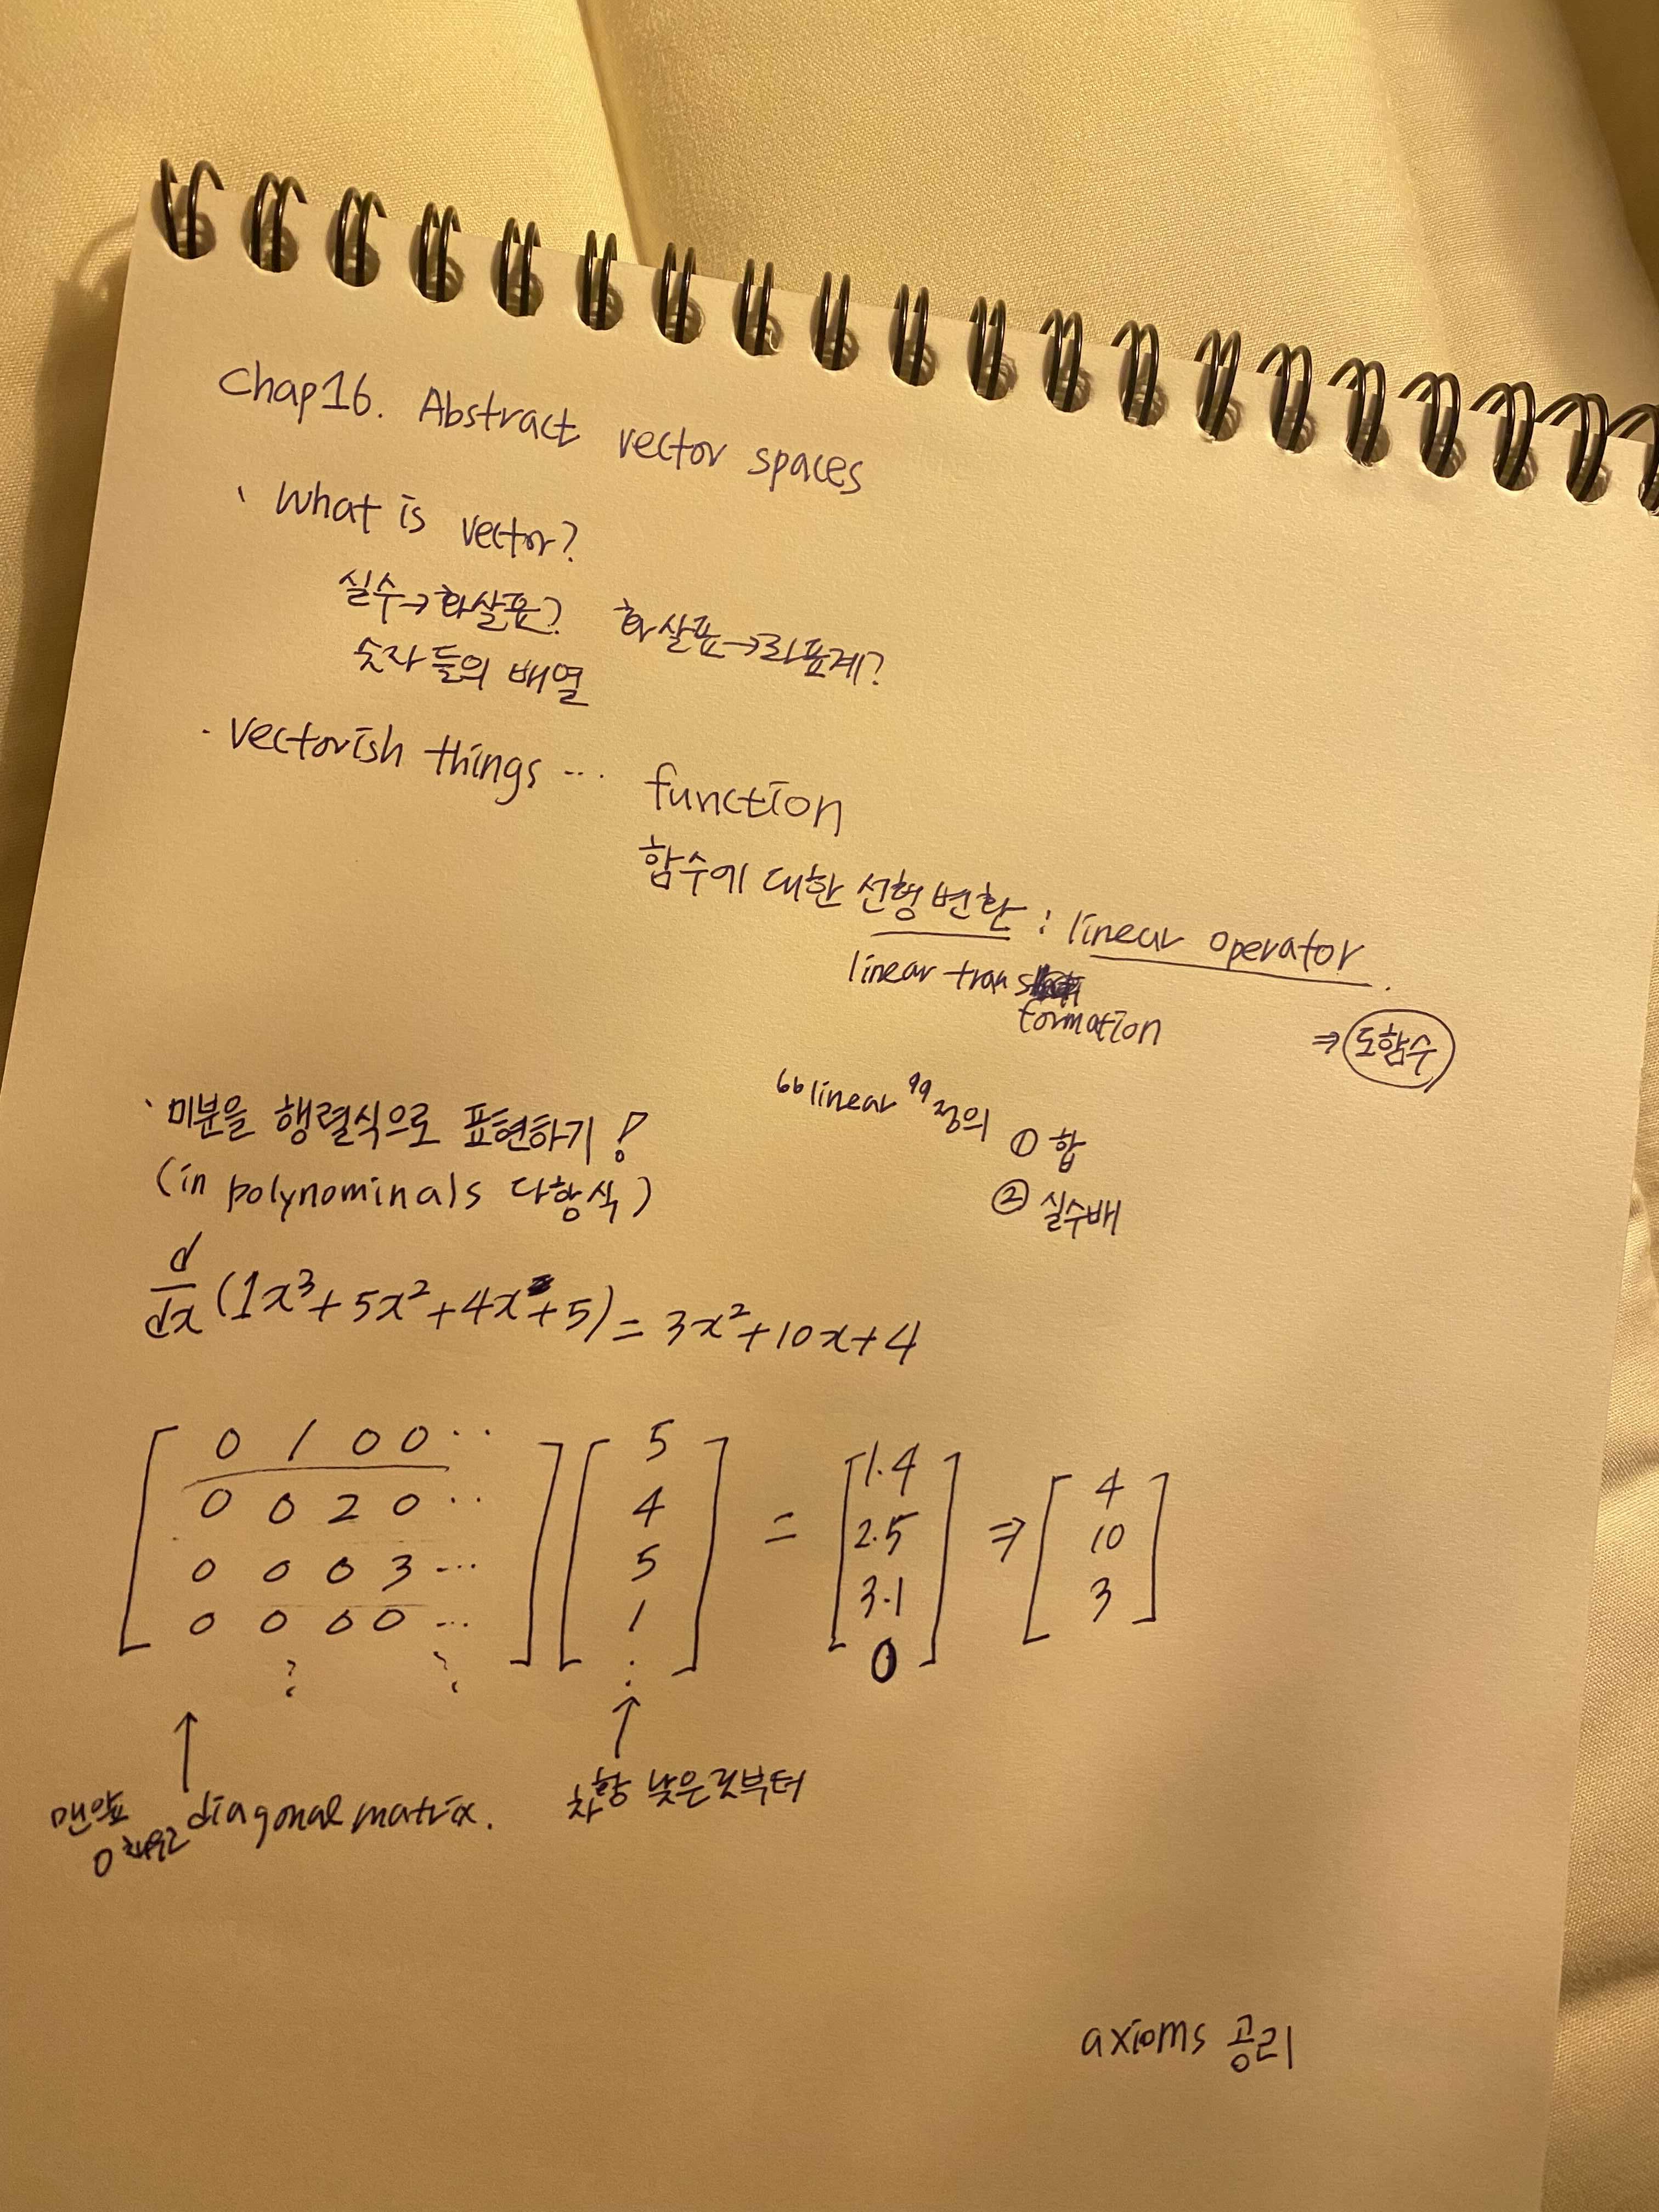 Chap16. Abstract vector spaces
· What is vector?
실수→화살표? 화살표→좌표계?
숫자들의 배열
· Vectorish things ... function
함수에 대한 선형변환 : linear operator.
linear trans
formation
⇒ 도함수
“linear” 정의 ① 합
② 실수배
· 미분을 행렬식으로 표현하기!
(in polynominals 다항식)
d/dx (1x³+5x²+4x+5) = 3x²+10x+4
[ 0 1 0 0 ·· ] [ 5 ] = [ 1·4 ] ⇒ [ 4 ]
[ 0 0 2 0 ·· ] [ 4 ] [ 2·5 ] [ 10 ]
[ 0 0 0 3 ... ] [ 5 ] [ 3·1 ] [ 3 ]
[ 0 0 0 0 ... ] [ 1 ] [ 0 ]
⋮ ⋮ :
↑ ↑
맨앞
0 채우고 diagonal matrix.
차항 낮은 것부터
axioms 공리